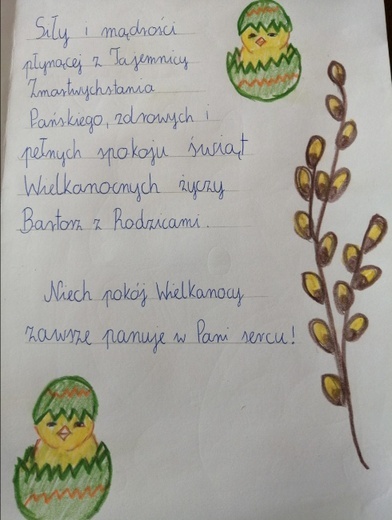 Siły i mądrości
płynącej z Tajemnicy
Zmartwychstania
Pańskiego, zdrowych i
pełnych spokoju świąt
Wielkanocnych życzy
Bartosz z Rodzicami.
Niech pokój Wielkanocy
zawsze panuje w Pani sercu!